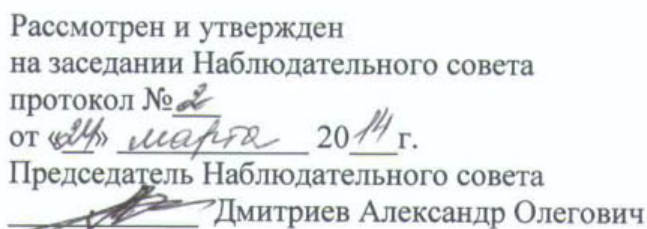 Рассмотрен и утвержден
на заседании Наблюдательного совета
протокол № 2
от «24» марта 2014 г.
Председатель Наблюдательного совета
Дмитриев Александр Олегович